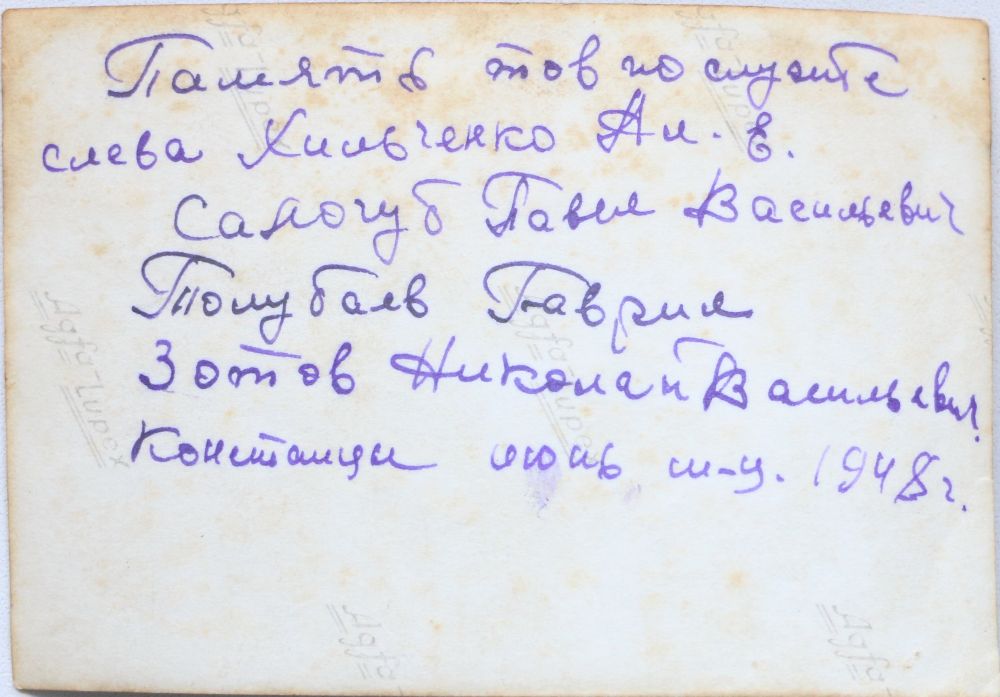 Память тов по служте
слева Хильченко Ал. Е.
Самочуб Павел Васильевич
Толубаев Гаврил
Зотов Николай Васильевич.
Констанци июнь м-ц. 1948 г.
Agfa-Lupex
Agfa-Lupex
Agfa-Lupex
Agfa-Lupex
Agfa-
Agfa-